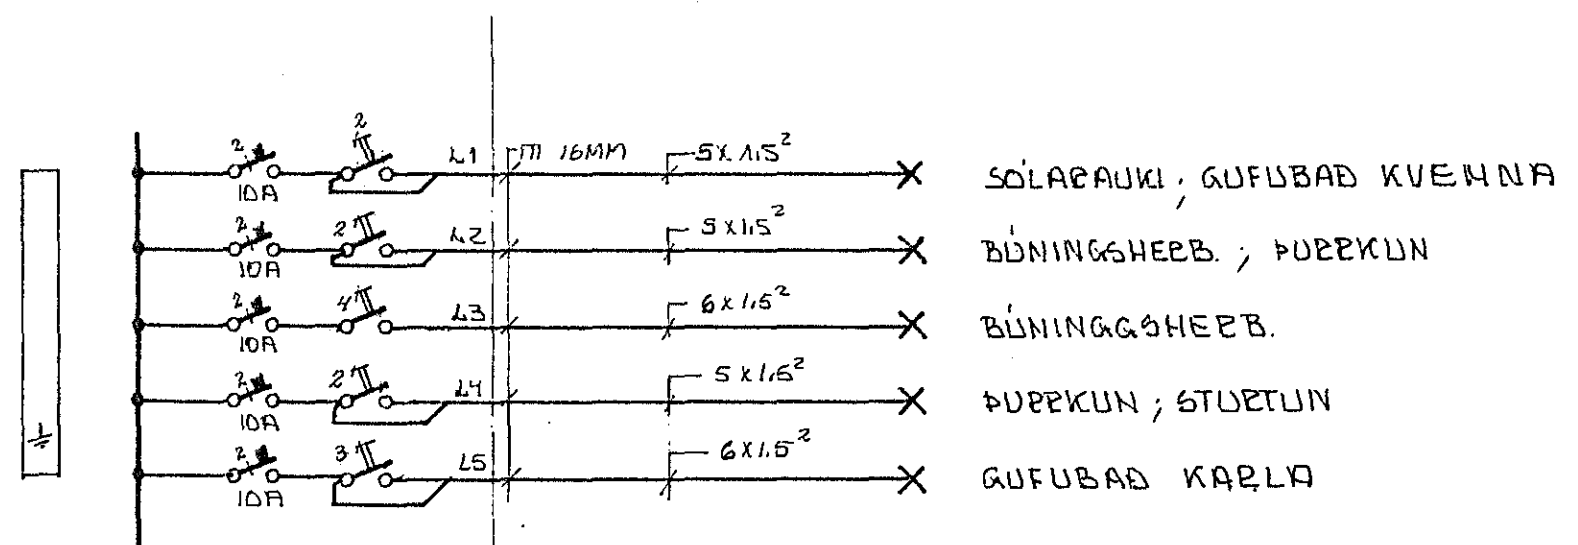 2 2 L1 m 16MM 5X 1.5² SÓLARAUKI ; GUFUBAÐ KVENNA
10A
2 2 L2 5X1.5² BÚNINGSHERB. ; ÞURRKUN
10A
2 4 L3 6X1.5² BÚNINGGSHERB.
10A
2 2 L4 5X1.5² ÞURRKUN ; STURTUN
10A
2 3 L5 6X1.5² GUFUBAÐ KARLA
10A